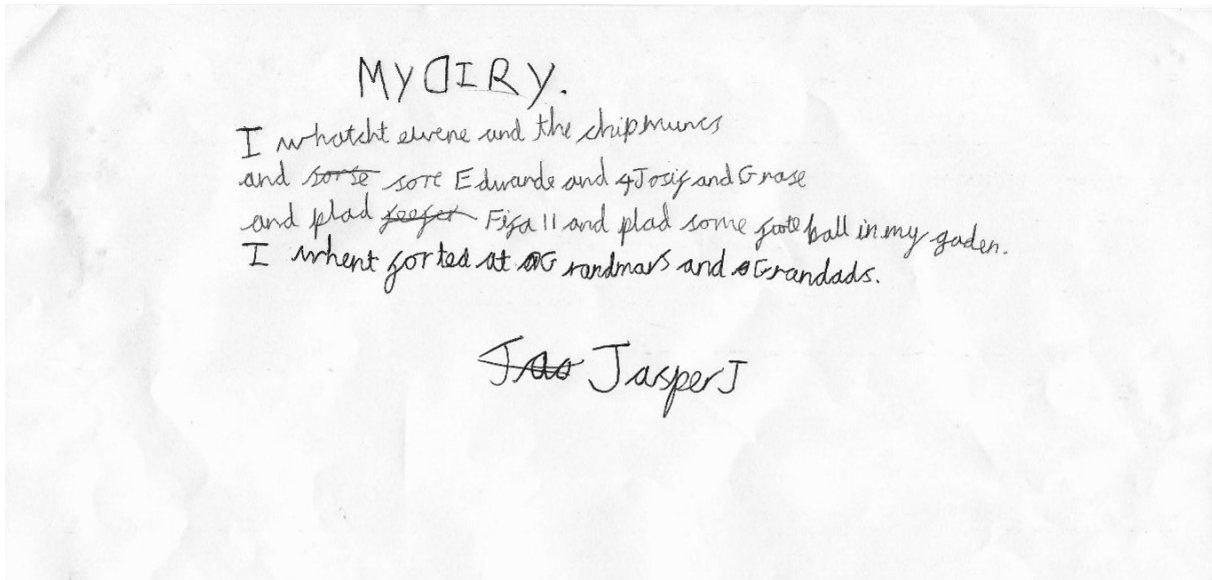 MY DIRY.
I whatcht elvene and the chipmuncs
and sorse sore Edwarde and Josif and Grase
and plad feefer Fifa 11 and plad some foote ball in my gaden.
I whent for ted at Grandmars and Grandads.
Jas JasperJ